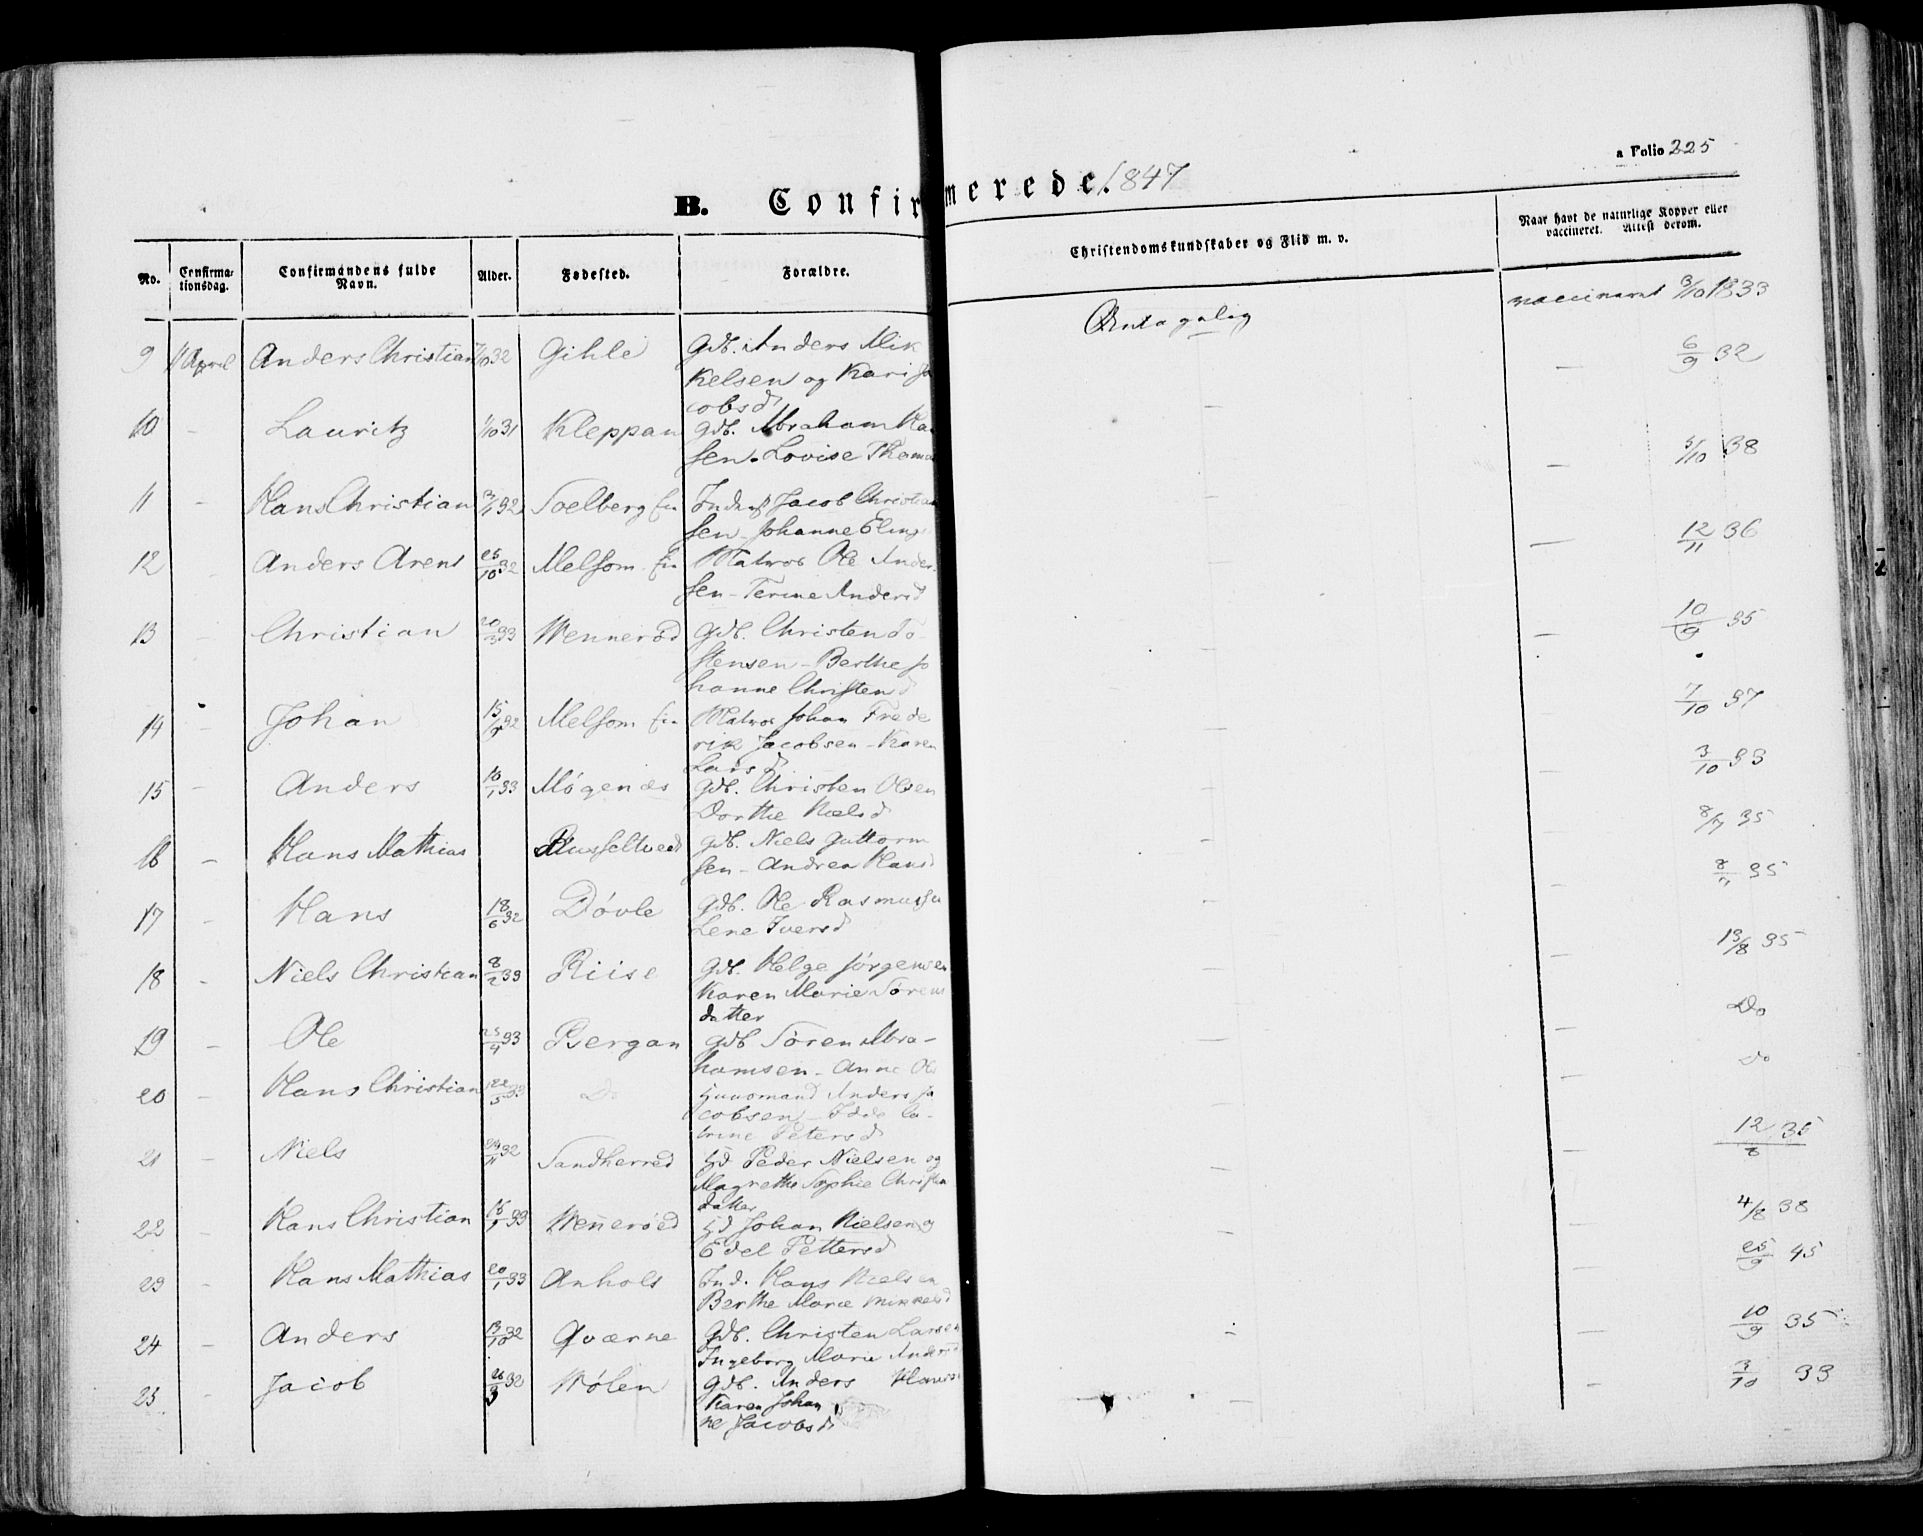 a Folio 225
B. Confirmerede. 1847
No.
Confirma-
tionsdag.
Confirmandens fulde
Navn.
Alder.
Fødested.
Forældre.
Christendomskundskaber og Flid m. v.
Naar havt de naturlige Kopper eller
vaccineret. Attest derom.
9 April Anders Christian 32 Gihle Gdb. Anders Mik
kelsen og Kari Ja
cobsd
Antagelig
vaccineret 3/10 1833
10 - Lauritz 1/10 31 Kleppan Gdb. Abraham Han
sen. Lovise Thom
— — 6/9 32
11 - Hans Christian 32 Soelberg Inderst Jacob Christian
sen - Johanne Eling
— — 5/10 38
12 - Anders Arent 25/10 32 Melsom Matros Ole Ander-
sen - Terine Andersd
— — 12/11 36
13 - Christian 20/3 33 Wennerød Gdb. Christen To-
stensen - Berthe Jo
hanne Christend
— — 10/9 35
14 - Johan 15/9 32 Melsom Matros Johan Frede
rik Jacobsen - Karen
Larsd
— — 7/10 37
15 - Anders 16/1 33 Møgenæs Gdb. Christen Olsen
Dorthe Nielsd
— — 3/10 33
16 - Hans Mathias Russeltvedt Gdb. Niels Guttorm
sen - Andrea Hansd
— — 8/7 35
17 - Hans 18/6 32 Døvle Gdb. Ole Rasmussen
Lene Iversd
— — 8/7 35
18 - Niels Christian 8/2 33 Riise Gdb. Helge Jørgensen
Karen Marie Sørens
datter
— — 13/8 35
19 - Ole 25/4 33 Bergan Gdb Søren Abra-
hamsen - Anne Ols
— — Do
20 - Hans Christian 22/5 33 Do Huusmand Anders Ja
cobsen - Ca-
trine Petersd
— — Do
21 - Niels 24/11 32 Sandherred Hd Peder Nielsen og
Magrethe Sophie Christen
datter
— — 12/8 35
22 - Hans Christian 33 Wennerøed Hd Johan Nielsen og
Edel Pettersd
— — 4/8 38
23 - Hans Mathias 20/1 33 Anholt Ind. Hans Nielsen
Berthe Marie Mikkelsd
— — 25/9 45
24 - Anders 13/10 32 Qværne Gdb. Christen Larsen
Ingeborg Marie Andersd
— — 10/9 35
25 - Jacob 26/3 32 Mølen Gdb. Anders Hans
Karen Johan
ne Jacobsd
— 3/10 33